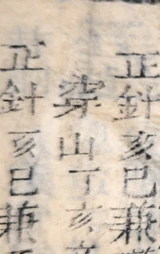 正針亥巳兼
穿山丁亥
正針亥巳兼